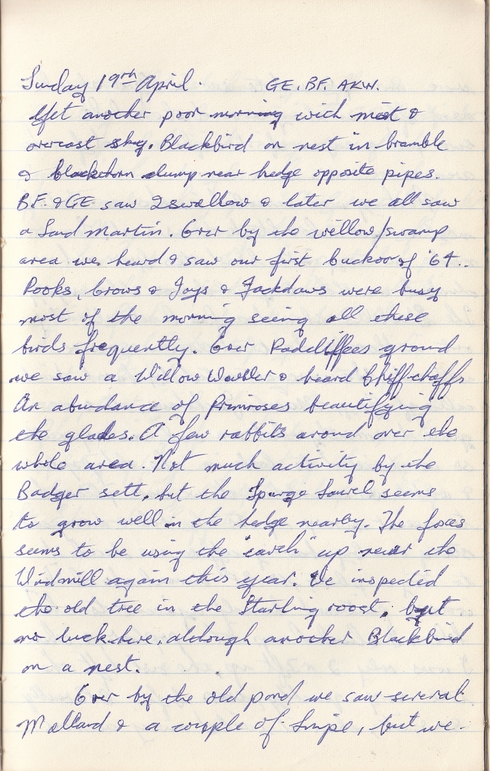 Sunday 19th April. GE. BF. AKW.
Yet another poor morning with mist &
overcast sky. Blackbird on nest in bramble
& blackthorn clump near hedge opposite pipes.
BF. & GE saw 2 swallow & later we all saw
a Sand Martin. Over by the willow/swamp
area we heard & saw our first Cuckoo of '64.
Rooks, Crows & Jays & Jackdaws were busy
most of the morning seeing all these
birds frequently. Over Radcliffes ground
we saw a Willow Warbler & heard Chiff-chaffs
An abundance of Primroses beautifying
the glades. A few rabbits around over the
whole area. Not much activity by the
Badger sett, but the Spurge Laurel seems
to grow well in the hedge nearby. The foxes
seems to be using the "earth" up near the
Windmill again this year. We inspected
the old tree in the Starling roost, but
no luck here, although another Blackbird
on a nest.
Over by the old pond we saw several
Mallard & a couple of Snipe, but we.